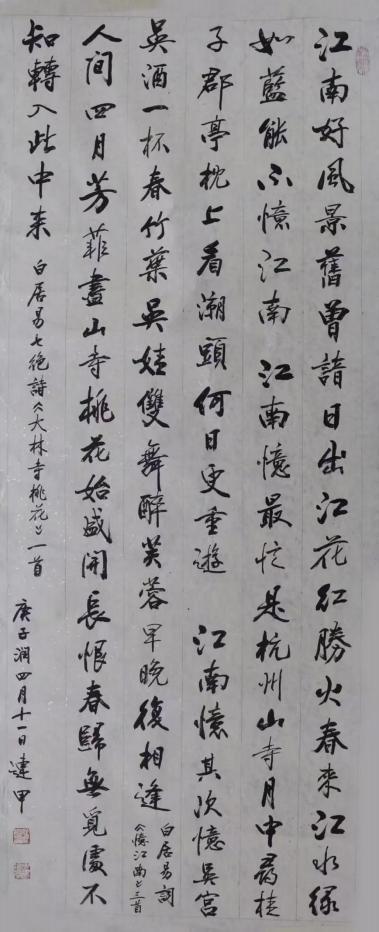 江南好風景舊曾諳日出江花红勝火春來江水緑
如藍能不憶江南 江南憶最忆是杭州山寺月中尋桂
子郡亭枕上看潮頭何日更重遊 江南憶其次憶吳宫
吳酒一杯春竹葉吳娃雙舞醉芙蓉早晚復相逢 白居易詞
《憶江南》三首
人间四月芳菲盡山寺桃花始盛開長恨春歸無覓處不
知轉入此中来 白居易七绝詩《大林寺桃花》一首
庚子潤四月十一日建甲